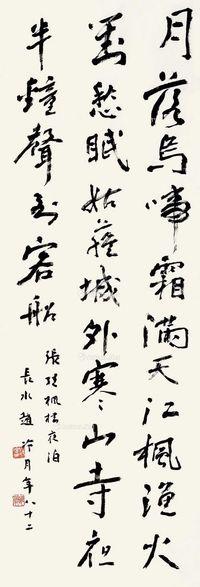 月落烏啼霜滿天江楓漁火
對愁眠姑蘇城外寒山寺夜
半鐘聲到客船
張繼楓橋夜泊
長水趙冷月年八十二